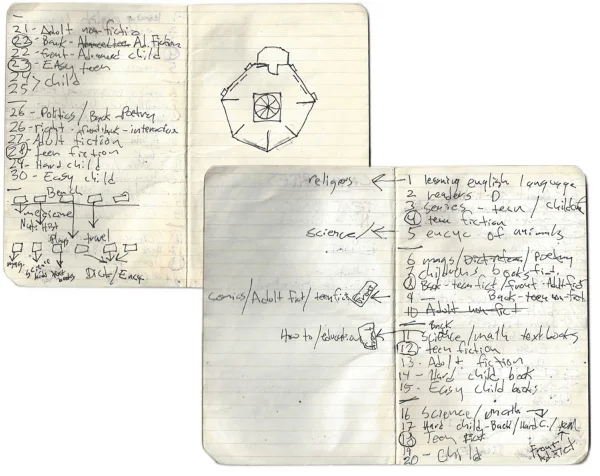 21 - Adult nonfiction
22 - Back - Ad. Fiction
22 - front - Advanced child
23 - Easy teen
24 > child
25
26 - Politics / Back - Poetry
26 - right - front/back - interactive
27 - Adult fiction
28 - teen fiction
29 - Hard child
30 - Easy child
Bench
medicine
plays travel
Dicts/Ency
religions ← 1 learning english language
2 readers :D
3 series - teen / children
4 teen fiction
science/ ← 5 encyc of animals
6 mags/Dictionaries/Poetry
7 childrens books fict.
comics/Adult fict/teen fict ← 8 Back - teen fict / front - Adult fict
9 — Back - teen non-fict
10 Adult non fict
Back
How to/education ← 11 science/math textbooks
12 - teen fiction
13 - Adult fiction
14 - Hard child book
15 - Easy child books
16 science/math
17 Hard child - Back / Hard C. /
18 Teen
19
20 - Child
Front